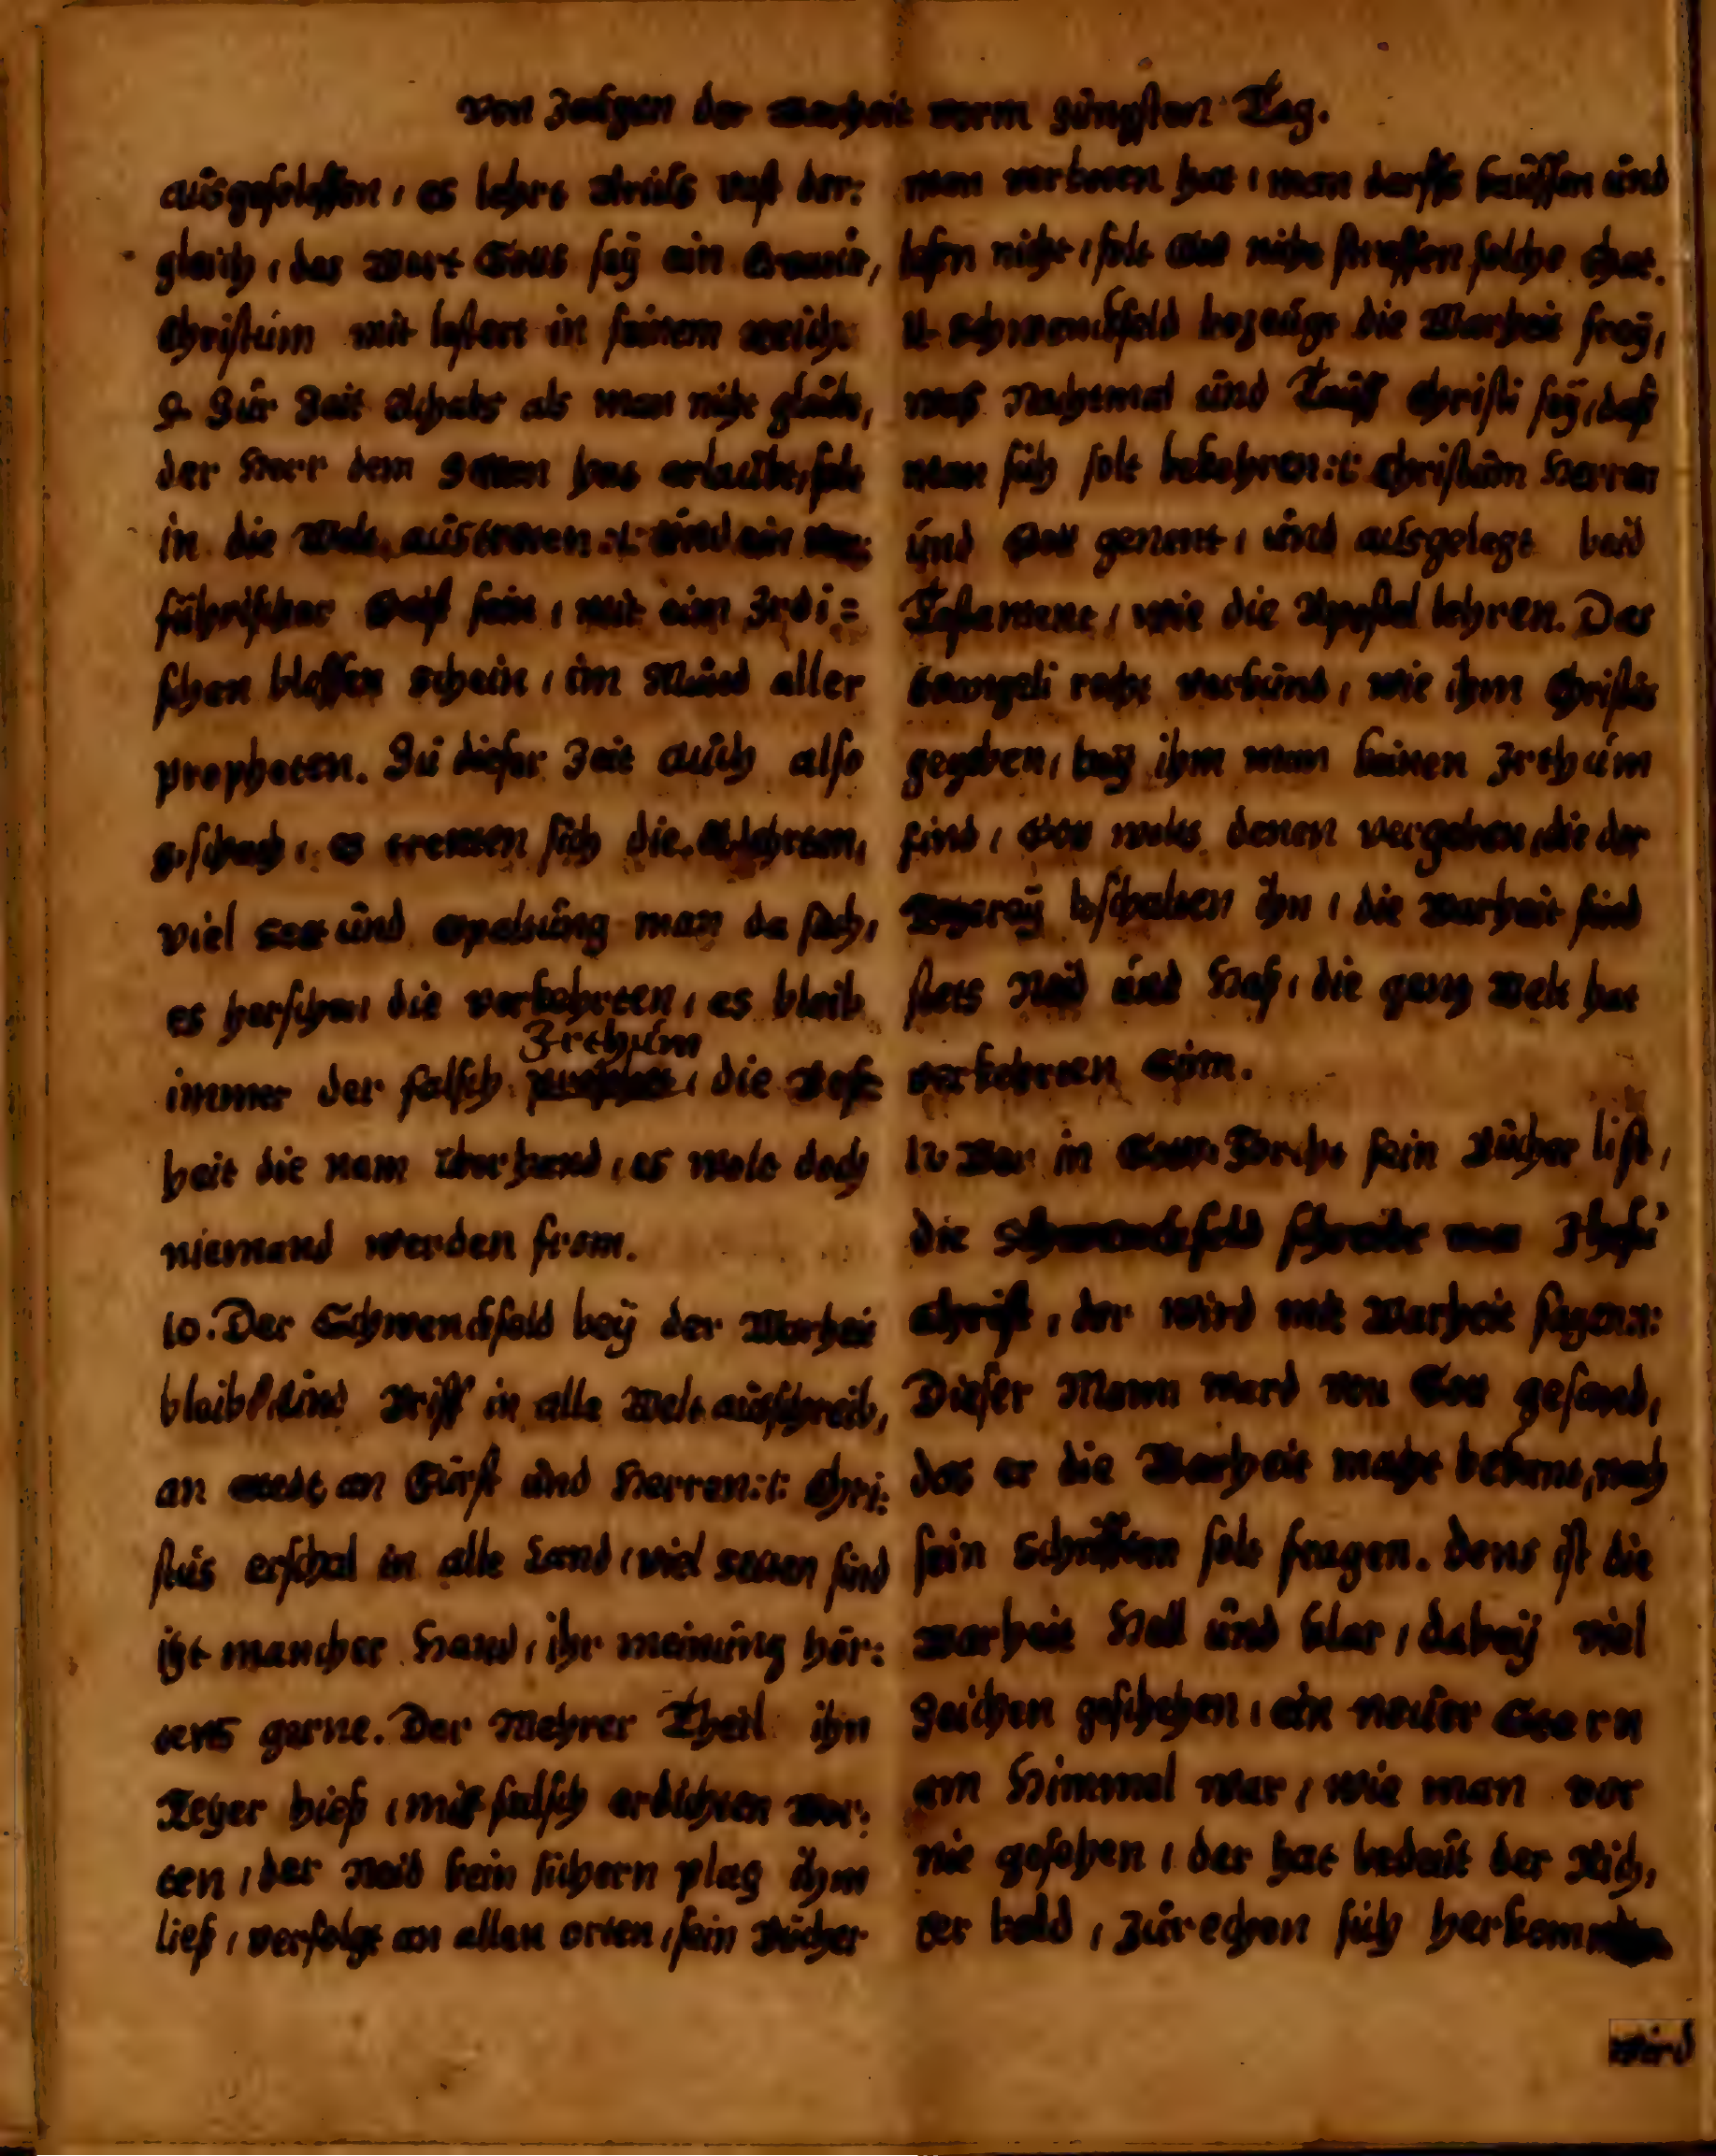 Von Zeügen der Warheit vorm Jüngsten Tag.
ausgeschlossen, es lehrt vast der:
gleich, das Wort Gotts seÿ ein Creatur,
Christum mit lestert in seinem reich.
9. Zür Zeit Achabs als man nicht glaubt,
der Herr dem Satan hat erlaubt, solt
in die Welt austreten :t: und ein ver:
führischer Geist sein, mit eim Irdi=
schen blossen schein, im Mund aller
propheten. Zu dieser Zeit auch also
geschach, es trenten sich die Glehrten,
viel Sect und Spaltung man da sach,
es herschten die verkehrten, es bleib
immer der falsch Irthum, die Boß:
heit die nam überhand, es wolt doch
niemand werden from.
10. Der Schwenckfeld beÿ der Warheit
bleib, und Brieff in alle Welt ausschreib,
an Stedt, an Fürst und Herren :t: Chri:
stus erschal in alle Land, viel Secten sind
itzt mancher Hand, ihr meinung hör:
tens gerne. Der Mehrer Theil ihn
Kezer hieß, mit falsch erdichten Wor:
ten, der Neid kein sichern plaz ihm
ließ, verfolgt an allen orten, sein Bücher
man verboten hat, man darffs kauffen und
lesen nicht, solt Gott nicht straffen solche that.
11. Schwenckfeld bezeügt die Warheit freÿ,
was Nachtmal und Tauff Christi seÿ, daß
man sich solt bekehren :t: Christum Herren
und Gott genent, und ausgelegt beid
Testament, wie die Apostel lehren. Das
Evangeli recht verkünd, wie ihm Christus
gegeben, beÿ ihm man keinen Irthum
find, Gott wolts denen vergeben, die der
Kezereÿ bschalten ihn, die Warheit find
stets Neid und Haß, die ganz Welt hat
verkehrten Sinn.
12. Wer in Gotts Forcht sein Bücher list,
die Schwenckfeld schreibt von Jhesu
Christ, der wird mit Warheit sagen :t:
Dieser Mann ward von Gott gesand,
das er die Warheit macht bekant, nach
sein Schrifften solt fragen. Dens ist die
Warheit Hell und klar, dabeÿ viel
Zeichen geschehen, ein neuer Stern
am Himmel war, wie man vor
nie gesehen, der hat bedeut der Rich,
ter bald, zu rechen sich herkommen
wird